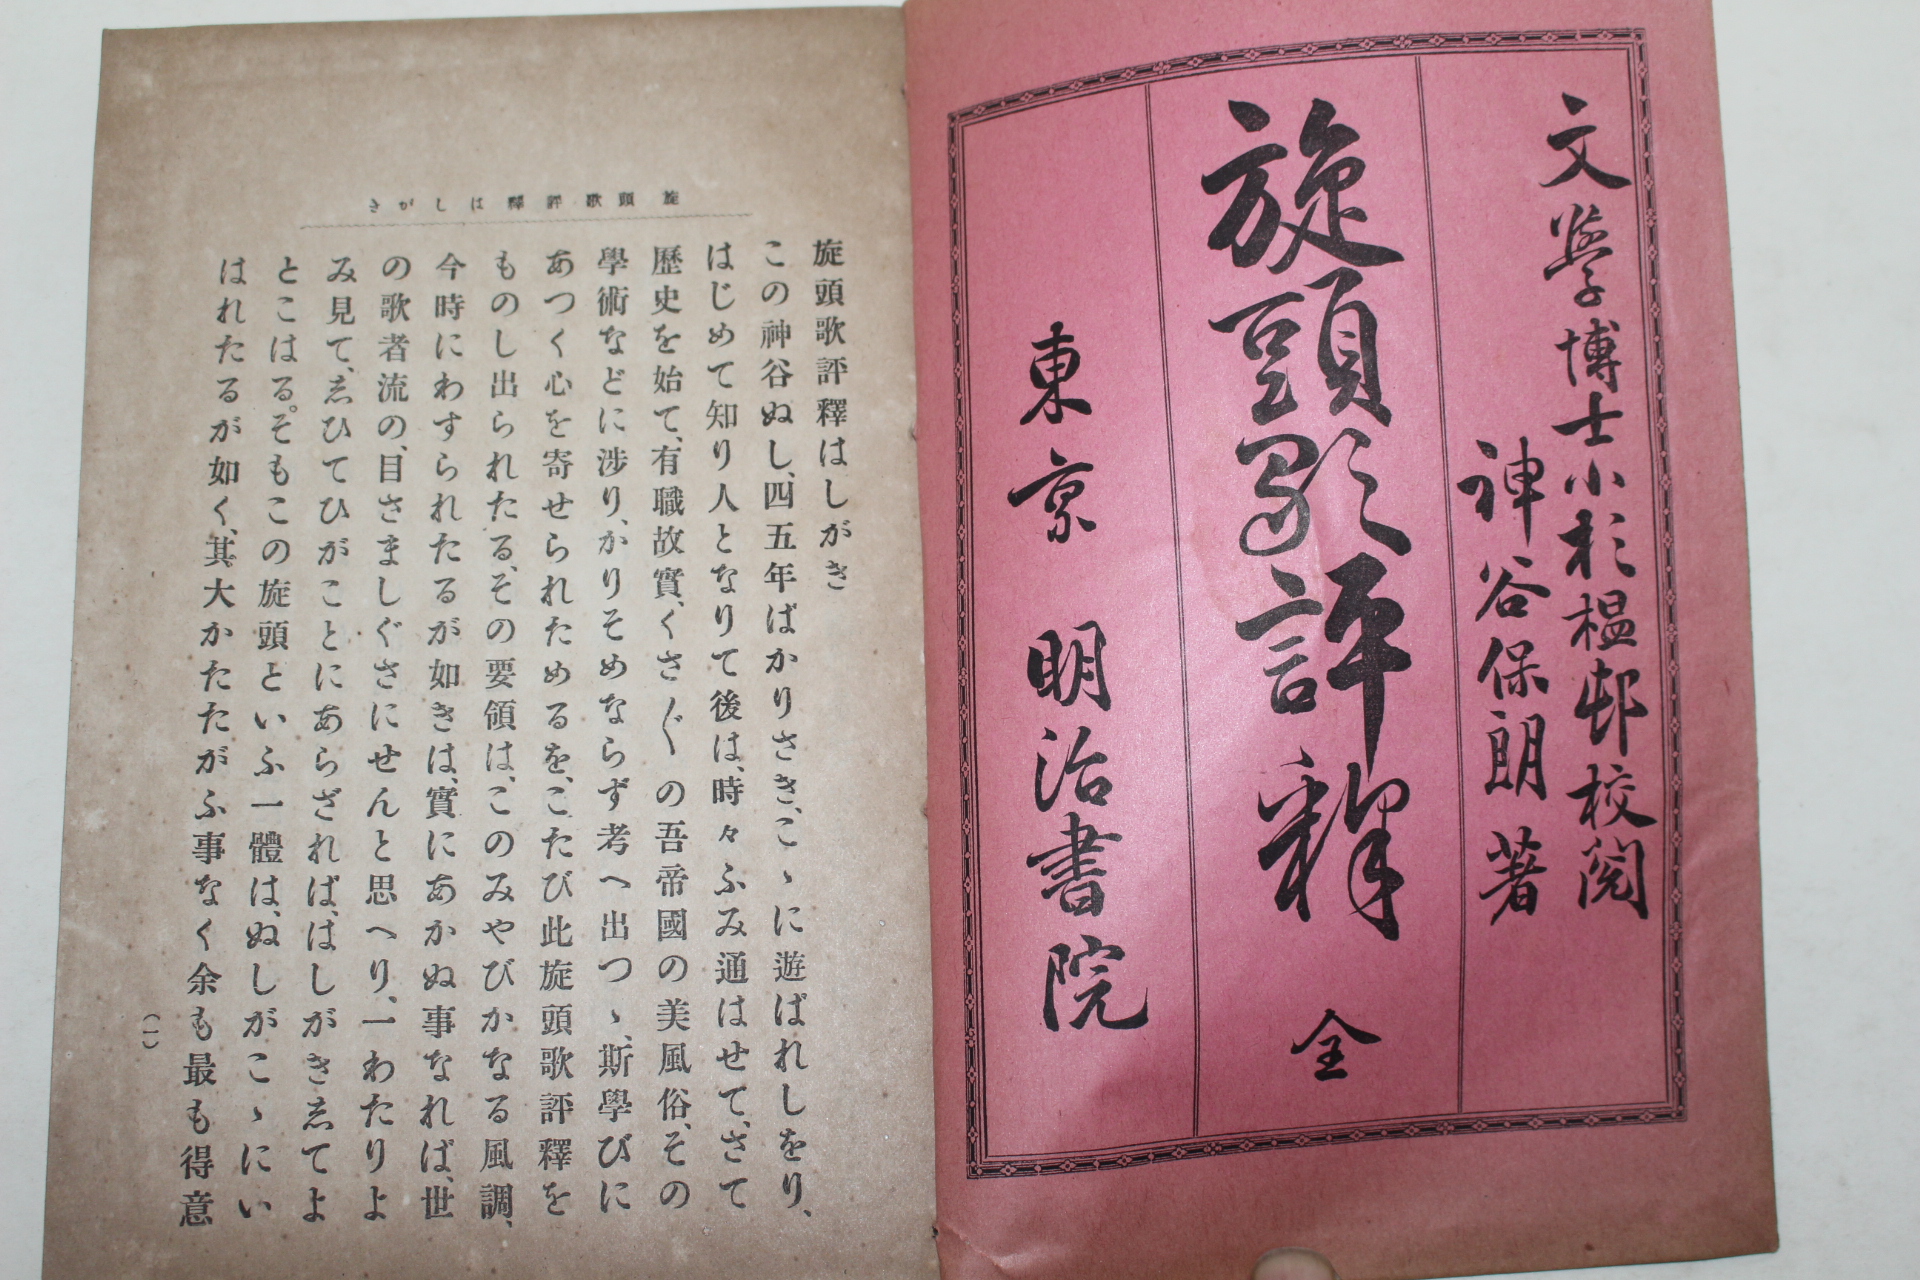 文學博士小杉榲邨校閲
神谷保朗著
旋頭歌評釋 全
東京 明治書院
旋頭歌評釋はしがき
旋頭歌評釋はしがき
この神谷ぬし、四五年ばかりさき、こゝに遊ばれしをり、
はじめて知り人となりて後は、時々ふみ通はせて、さて
歷史を始て、有職故實、くさ〴〵の吾帝國の美風俗、その
學術などに涉り、かりそめならず考へ出つゝ、斯學びに
あつく心を寄せられためるを、こたび此旋頭歌評釋を
ものし出られたる、その要領は、このみやびかなる風調、
今時にわすられたるが如きは、實にあかぬ事なれば、世
の歌者流の、目さましぐさにせんと思へり、一わたりよ
み見て、ゑひてひがことにあらざれば、はしがきゑてよ
とこはる。そもこの旋頭といふ一體は、ぬしがこゝにい
はれたるが如く、其大かたたがふ事なく余も最も得意
(一)